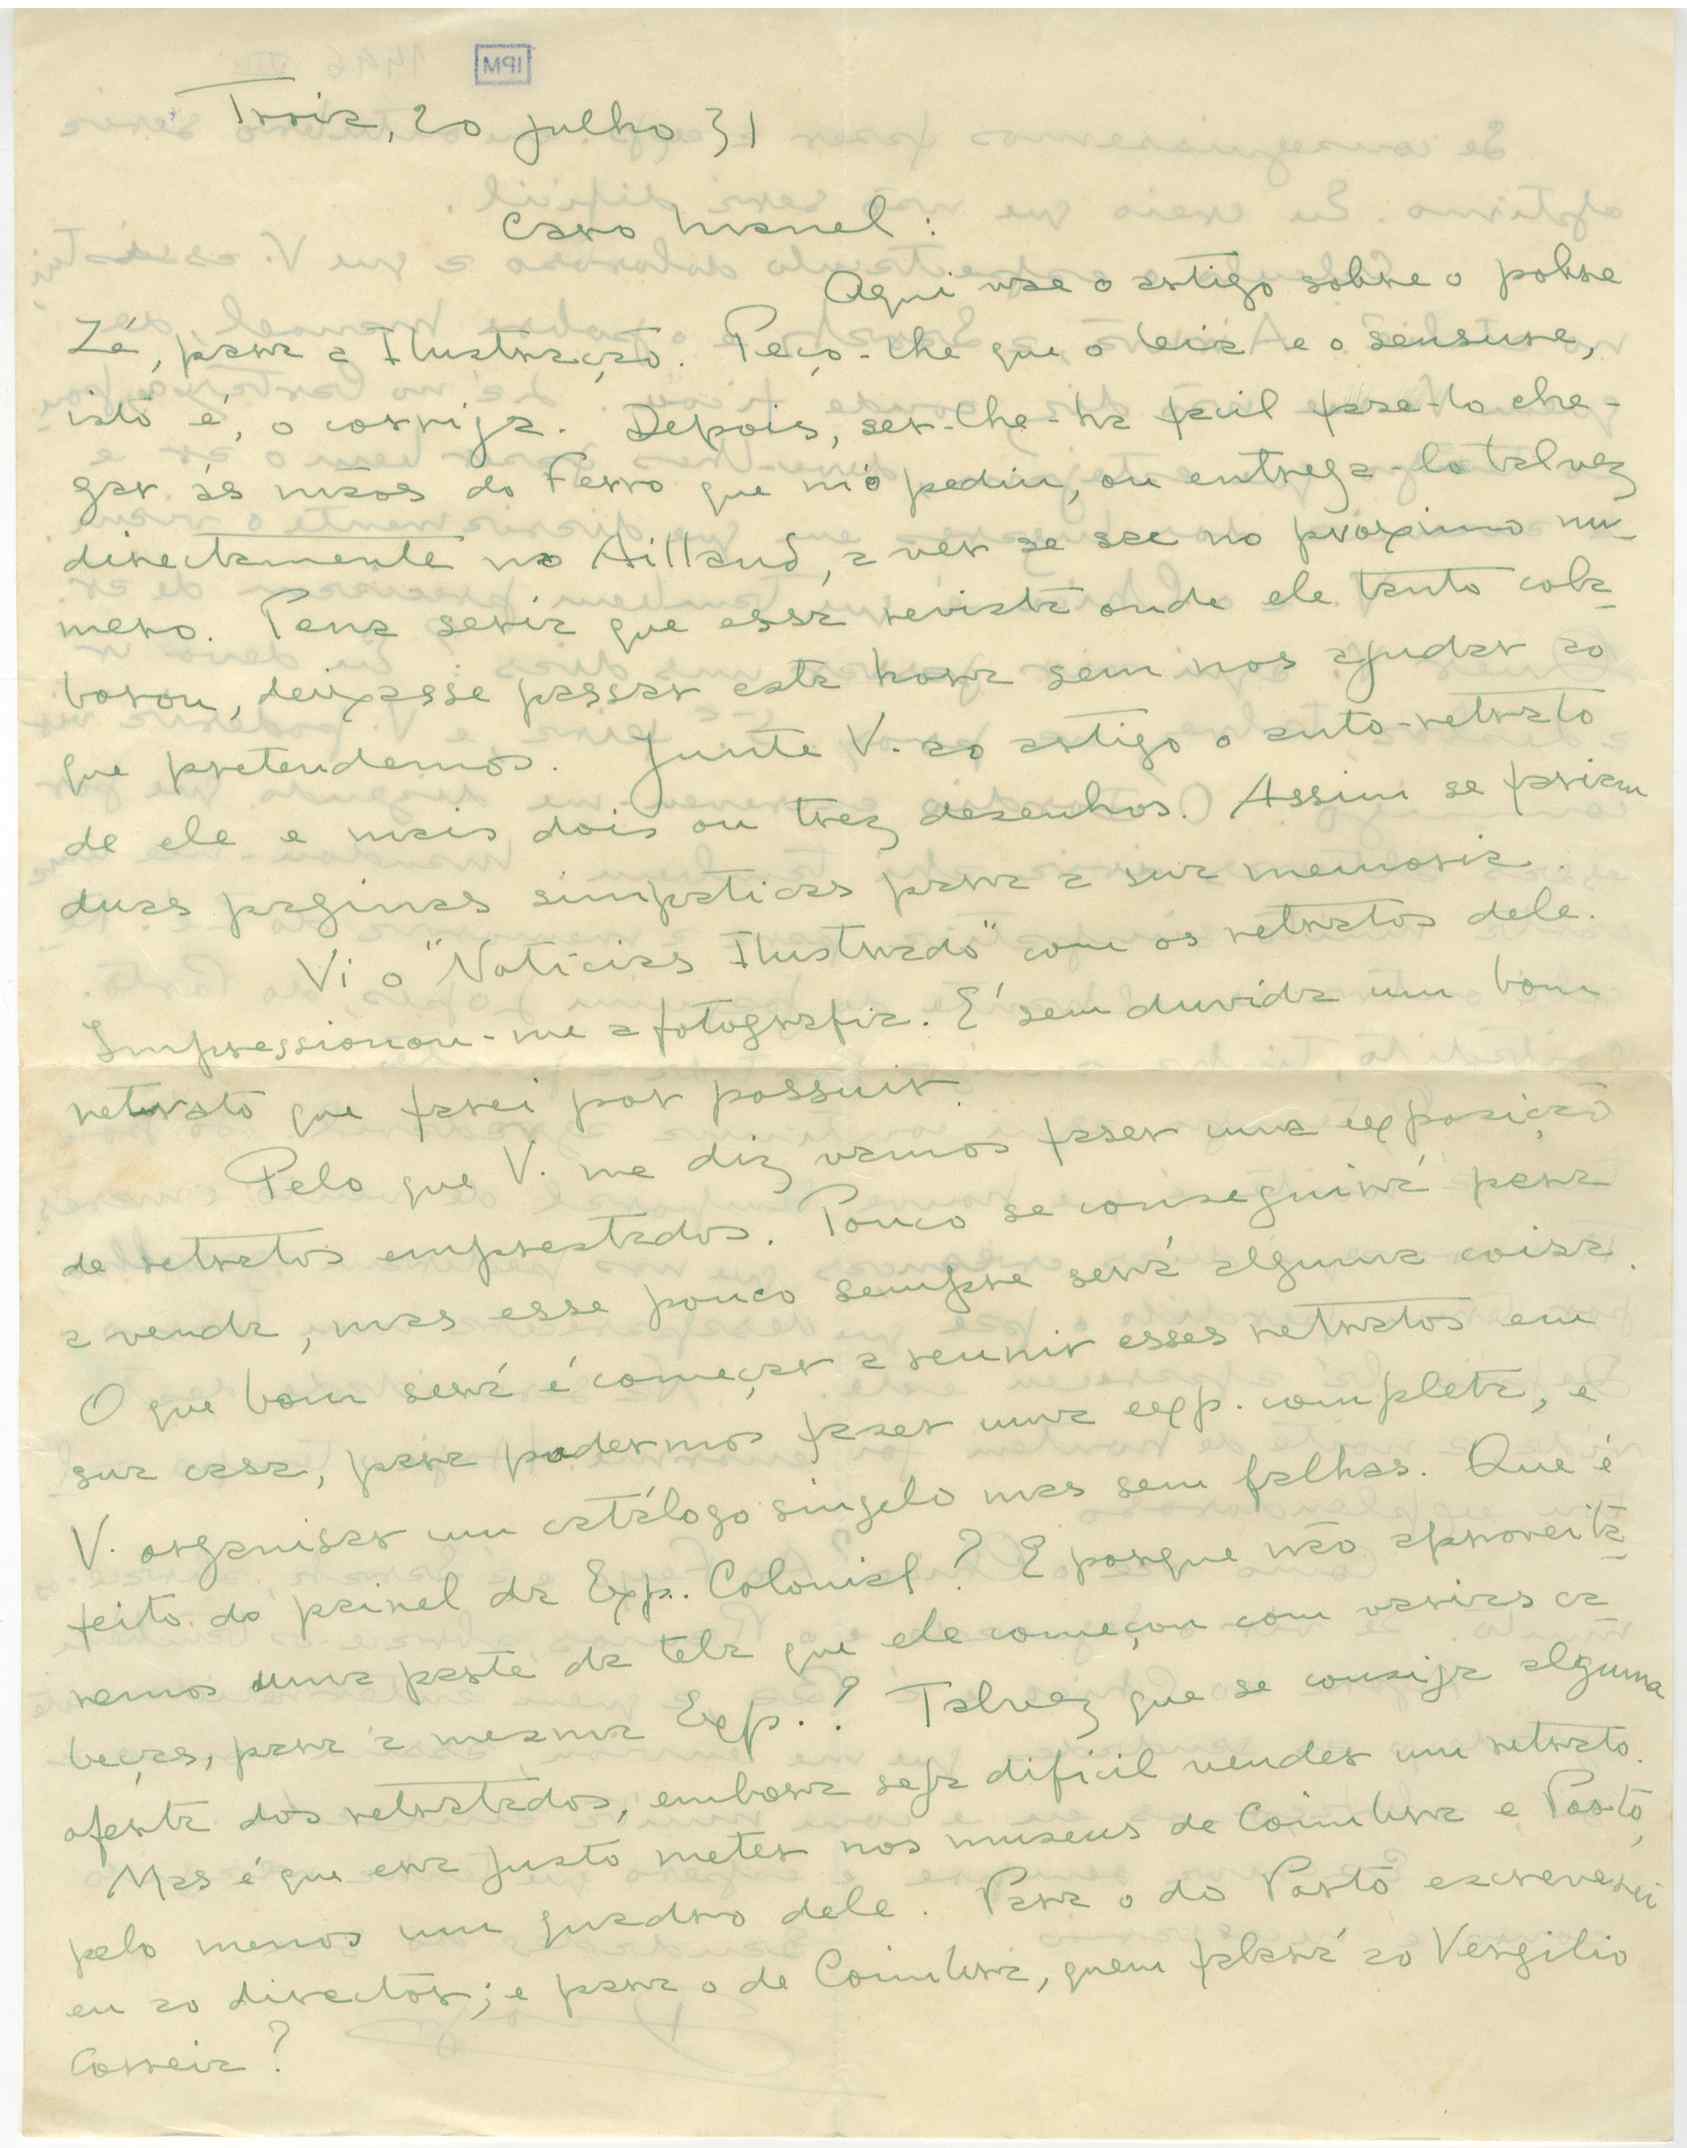 Troia, 20 julho 31
Caro Manel:
Aqui vae o artigo sobre o pobre
Zé, para a Ilustração. Peço-lhe que o leia e o sensure,
isto é, o corrija. Depois, ser-lhe-ha facil faze-lo che-
gar ás mãos do Ferro que m'o pediu, ou entrega-lo talvez
directamente na Aillaud, a ver se sae no proximo nu-
mero. Pena seria que essa revista onde ele tanto cola-
borou, deixasse passar esta hora sem nos ajudar ao
que pretendemos. Junte V. ao artigo o auto-retrato
de ele e mais dois ou trez desenhos. Assim se fariam
duas paginas simpaticas para a sua memoria.
Vi o "Noticias Ilustrado" com os retratos dele.
Impressionou-me a fotografia. É sem duvida um bom
retrato que farei por possuir.
Pelo que V. me diz vamos faser uma exposição
de retratos emprestados. Pouco se conseguirá para
a venda, mas esse pouco sempre será alguma coisa.
O que bom será é começar a reunir esses retratos em
sua casa, para podermos faser uma exp. completa, e
V. organisar um catálogo singelo mas sem falhas. Que é
feito do painel da Exp. Colonial? E porque não aproveita-
remos uma parte da tela que ele começou com varias ca-
beças, para a mesma Exp.? Talvez que se consiga alguma
oferta dos retratados, embora seja dificil vender um retrato.
Mas é que era justo meter nos museus de Coimbra e Porto,
pelo menos um quadro dele. Para o do Porto escreverei
eu ao director; e para o de Coimbra, quem falará ao Vergilio
Correia?